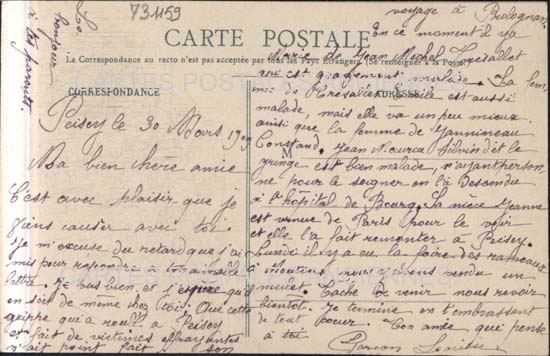 731159
CARTE POSTALE
La Correspondance au recto n'est pas acceptée par tous les Pays Étrangers (Se renseigner à la Poste)
CORRESPONDANCE
ADRESSE
M
Peisey le 30 Mars 1909
Ma bien chere amie
C'est avec plaisir que je
viens causer avec toi.
Je m'excuse du retard que j'ai
mis pour repondre a ton aimable
lettre. Je suis bien et j'espere qu'il
en soit de meme chez toi. Que cette
grippe qui a à Peisey
et fait de victimes effrayantes
n'ait point fait son
voyage à Bozel
En ce moment il y a
Marie de Jean Michel Trésallet
qui est gravement malade. La fem
me Trésallet Emile est aussi
malade, mais elle va un peu mieux.
ainsi que la femme de
Constand. Jean Maurice Silvin dit le
est bien malade, n'ayant person
ne pour le soigner on l'a descendu
à l'hopital de Bourg. Sa niece Jeanne
est venue de Paris pour le voir
et elle l'a fait remonter à Peisey.
Lundi il y a eu la foire des rameaux
à moutiers, nous avons vendu un
mulet. Tache de venir nous revoir
bientot. Je termine en t'embrassant
de tout coeur. Ton amie qui pense
à toi